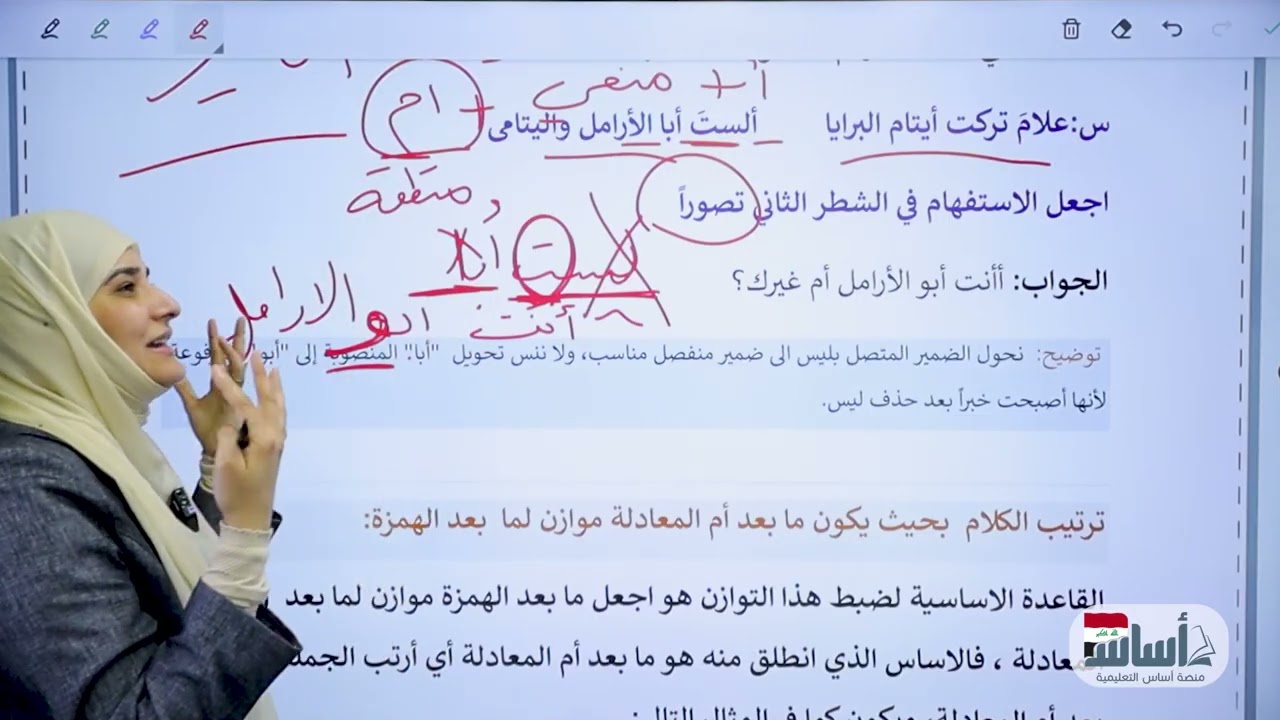 أ + منفي + ام
س:علامَ تركت أيتام البرايا ألستَ أبا الأرامل واليتامى
منقطعة
اجعل الاستفهام في الشطر الثاني تصوراً
لست أبا
الجواب: أأنت أبو الأرامل أم غيرك؟
أأنت ابو الارامل
توضيح: نحول الضمير المتصل بليس الى ضمير منفصل مناسب، ولا ننس تحويل "أبا" المنصوبة إلى "أبو"
لأنها أصبحت خبراً بعد حذف ليس.
ترتيب الكلام بحيث يكون ما بعد أم المعادلة موازن لما بعد الهمزة:
القاعدة الاساسية لضبط هذا التوازن هو اجعل ما بعد الهمزة موازن لما بعد
المعادلة ، فالاساس الذي انطلق منه هو ما بعد أم المعادلة أي أرتب
أساس
منصة أساس التعليمية